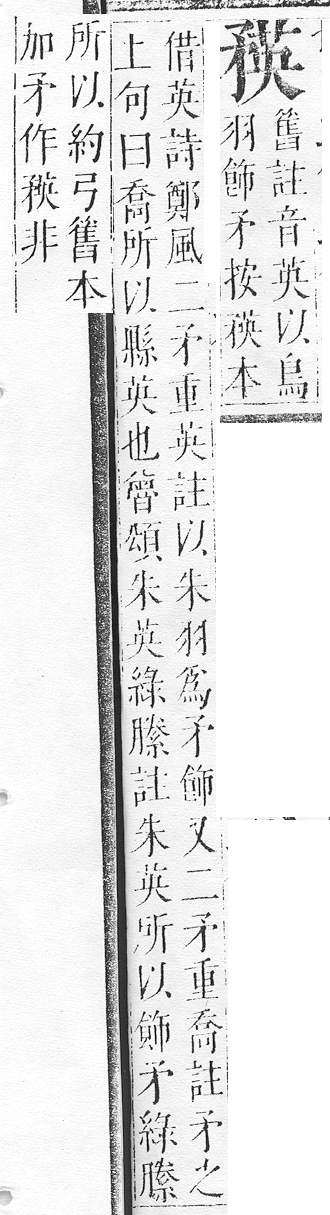 䂉
舊註音英以鳥
羽飾矛按䂉本
借英詩鄭風二矛重英註以朱羽爲矛飾又二矛重喬註矛之
上句曰喬所以縣英也魯頌朱英綠縢註朱英所以飾矛綠縢
所以約弓舊本
加矛作䂉非